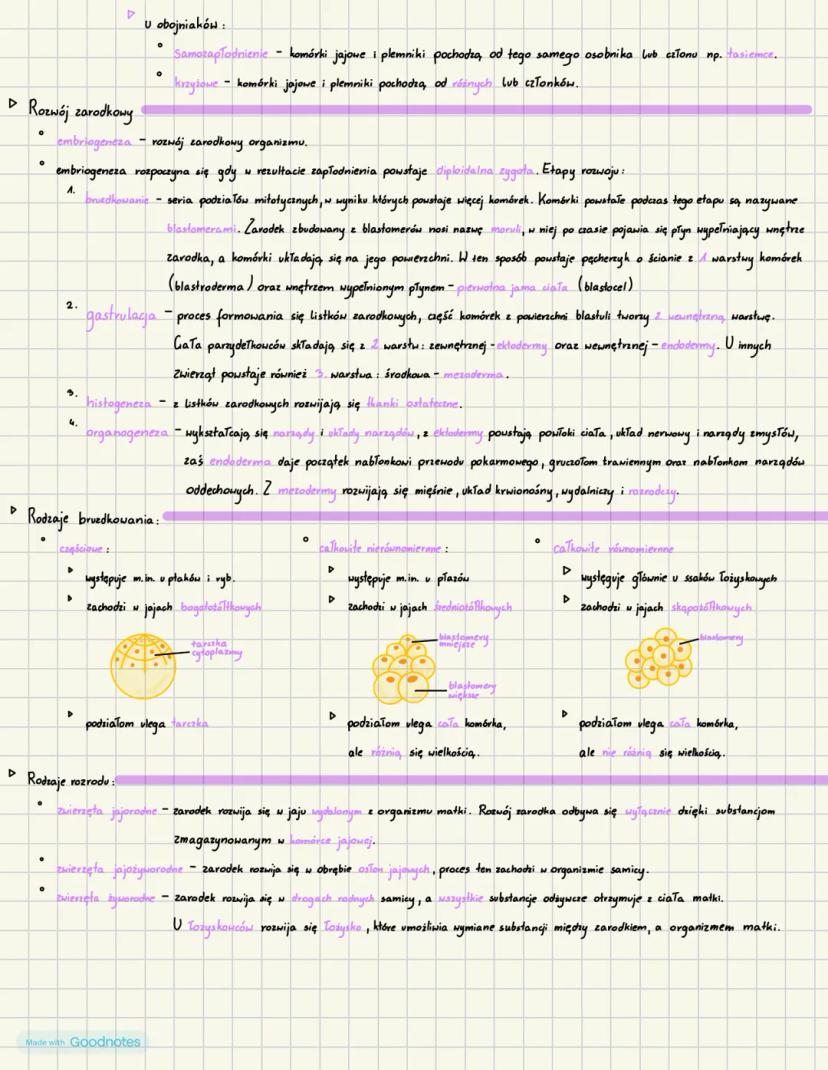 ▷ U obojniaków:
° Samozapłodnienie – komórki jajowe i plemniki pochodzą od tego samego osobnika lub członu np. tasiemce.
° krzyżowe – komórki jajowe i plemniki pochodzą od różnych lub członków.
▷ Rozwój zarodkowy
° embriogeneza – rozwój zarodkowy organizmu.
° embriogeneza rozpoczyna się gdy w rezultacie zapłodnienia powstaje diploidalna zygota. Etapy rozwoju:
1. bruzdkowanie – seria podziałów mitotycznych, w wyniku których powstaje więcej komórek. Komórki powstałe podczas tego etapu są nazywane
blastomerami. Zarodek zbudowany z blastomerów nosi nazwę moruli, w niej po czasie pojawia się płyn wypełniający wnętrze
zarodka, a komórki układają się na jego powierzchni. W ten sposób powstaje pęcherzyk o ścianie z 1 warstwy komórek
(blastroderma) oraz wnętrzem wypełnionym płynem – pierwotna jama ciała (blastocel)
2. gastrulacja – proces formowania się listków zarodkowych, część komórek z powierzchni blastuli tworzy 2 wewnętrzną warstwę.
Ciała parzydełkowców składają się z 2 warstw: zewnętrznej - ektodermy oraz wewnętrznej – endodermy. U innych
zwierząt powstaje również 3. warstwa: środkowa – mezoderma.
3. histogeneza – z listków zarodkowych rozwijają się tkanki ostateczne.
4. organogeneza – wykształcają się narządy i układy narządów, z ektodermy powstają powłoki ciała, układ nerwowy i narządy zmysłów,
zaś endoderma daje początek nabłonkowi przewodu pokarmowego, gruczołom trawiennym oraz nabłonkom narządów
oddechowych. Z mezodermy rozwijają się mięśnie, układ krwionośny, wydalniczy i rozrodczy.
▷ Rodzaje bruzdkowania:
° częściowe:
▷ występuje m.in. u ptaków i ryb.
▷ zachodzi w jajach bogatożółtkowych
tarczka
cytoplazmy
▷ podziałom ulega tarczka
° całkowite nierównomierne:
▷ występuje m.in. u płazów
▷ zachodzi w jajach średniożółtkowych
blastomery
mniejsze
blastomery
większe
▷ podziałom ulega cała komórka,
ale różnią się wielkością.
° całkowite równomierne
▷ występuje głównie u ssaków łożyskowych
▷ zachodzi w jajach skąpożółtkowych
blastomery
▷ podziałom ulega cała komórka,
ale nie różnią się wielkością.
▷ Rodzaje rozrodu:
° zwierzęta jajorodne – zarodek rozwija się w jaju wydalonym z organizmu matki. Rozwój zarodka odbywa się wyłącznie dzięki substancjom
zmagazynowanym w komórce jajowej.
° zwierzęta jajożyworodne – zarodek rozwija się w obrębie osłon jajowych, proces ten zachodzi w organizmie samicy.
° zwierzęta żyworodne – zarodek rozwija się w drogach rodnych samicy, a wszystkie substancje odżywcze otrzymuje z ciała matki.
U łożyskowców rozwija się łożysko, które umożliwia wymiane substancji między zarodkiem, a organizmem matki.
Made with Goodnotes